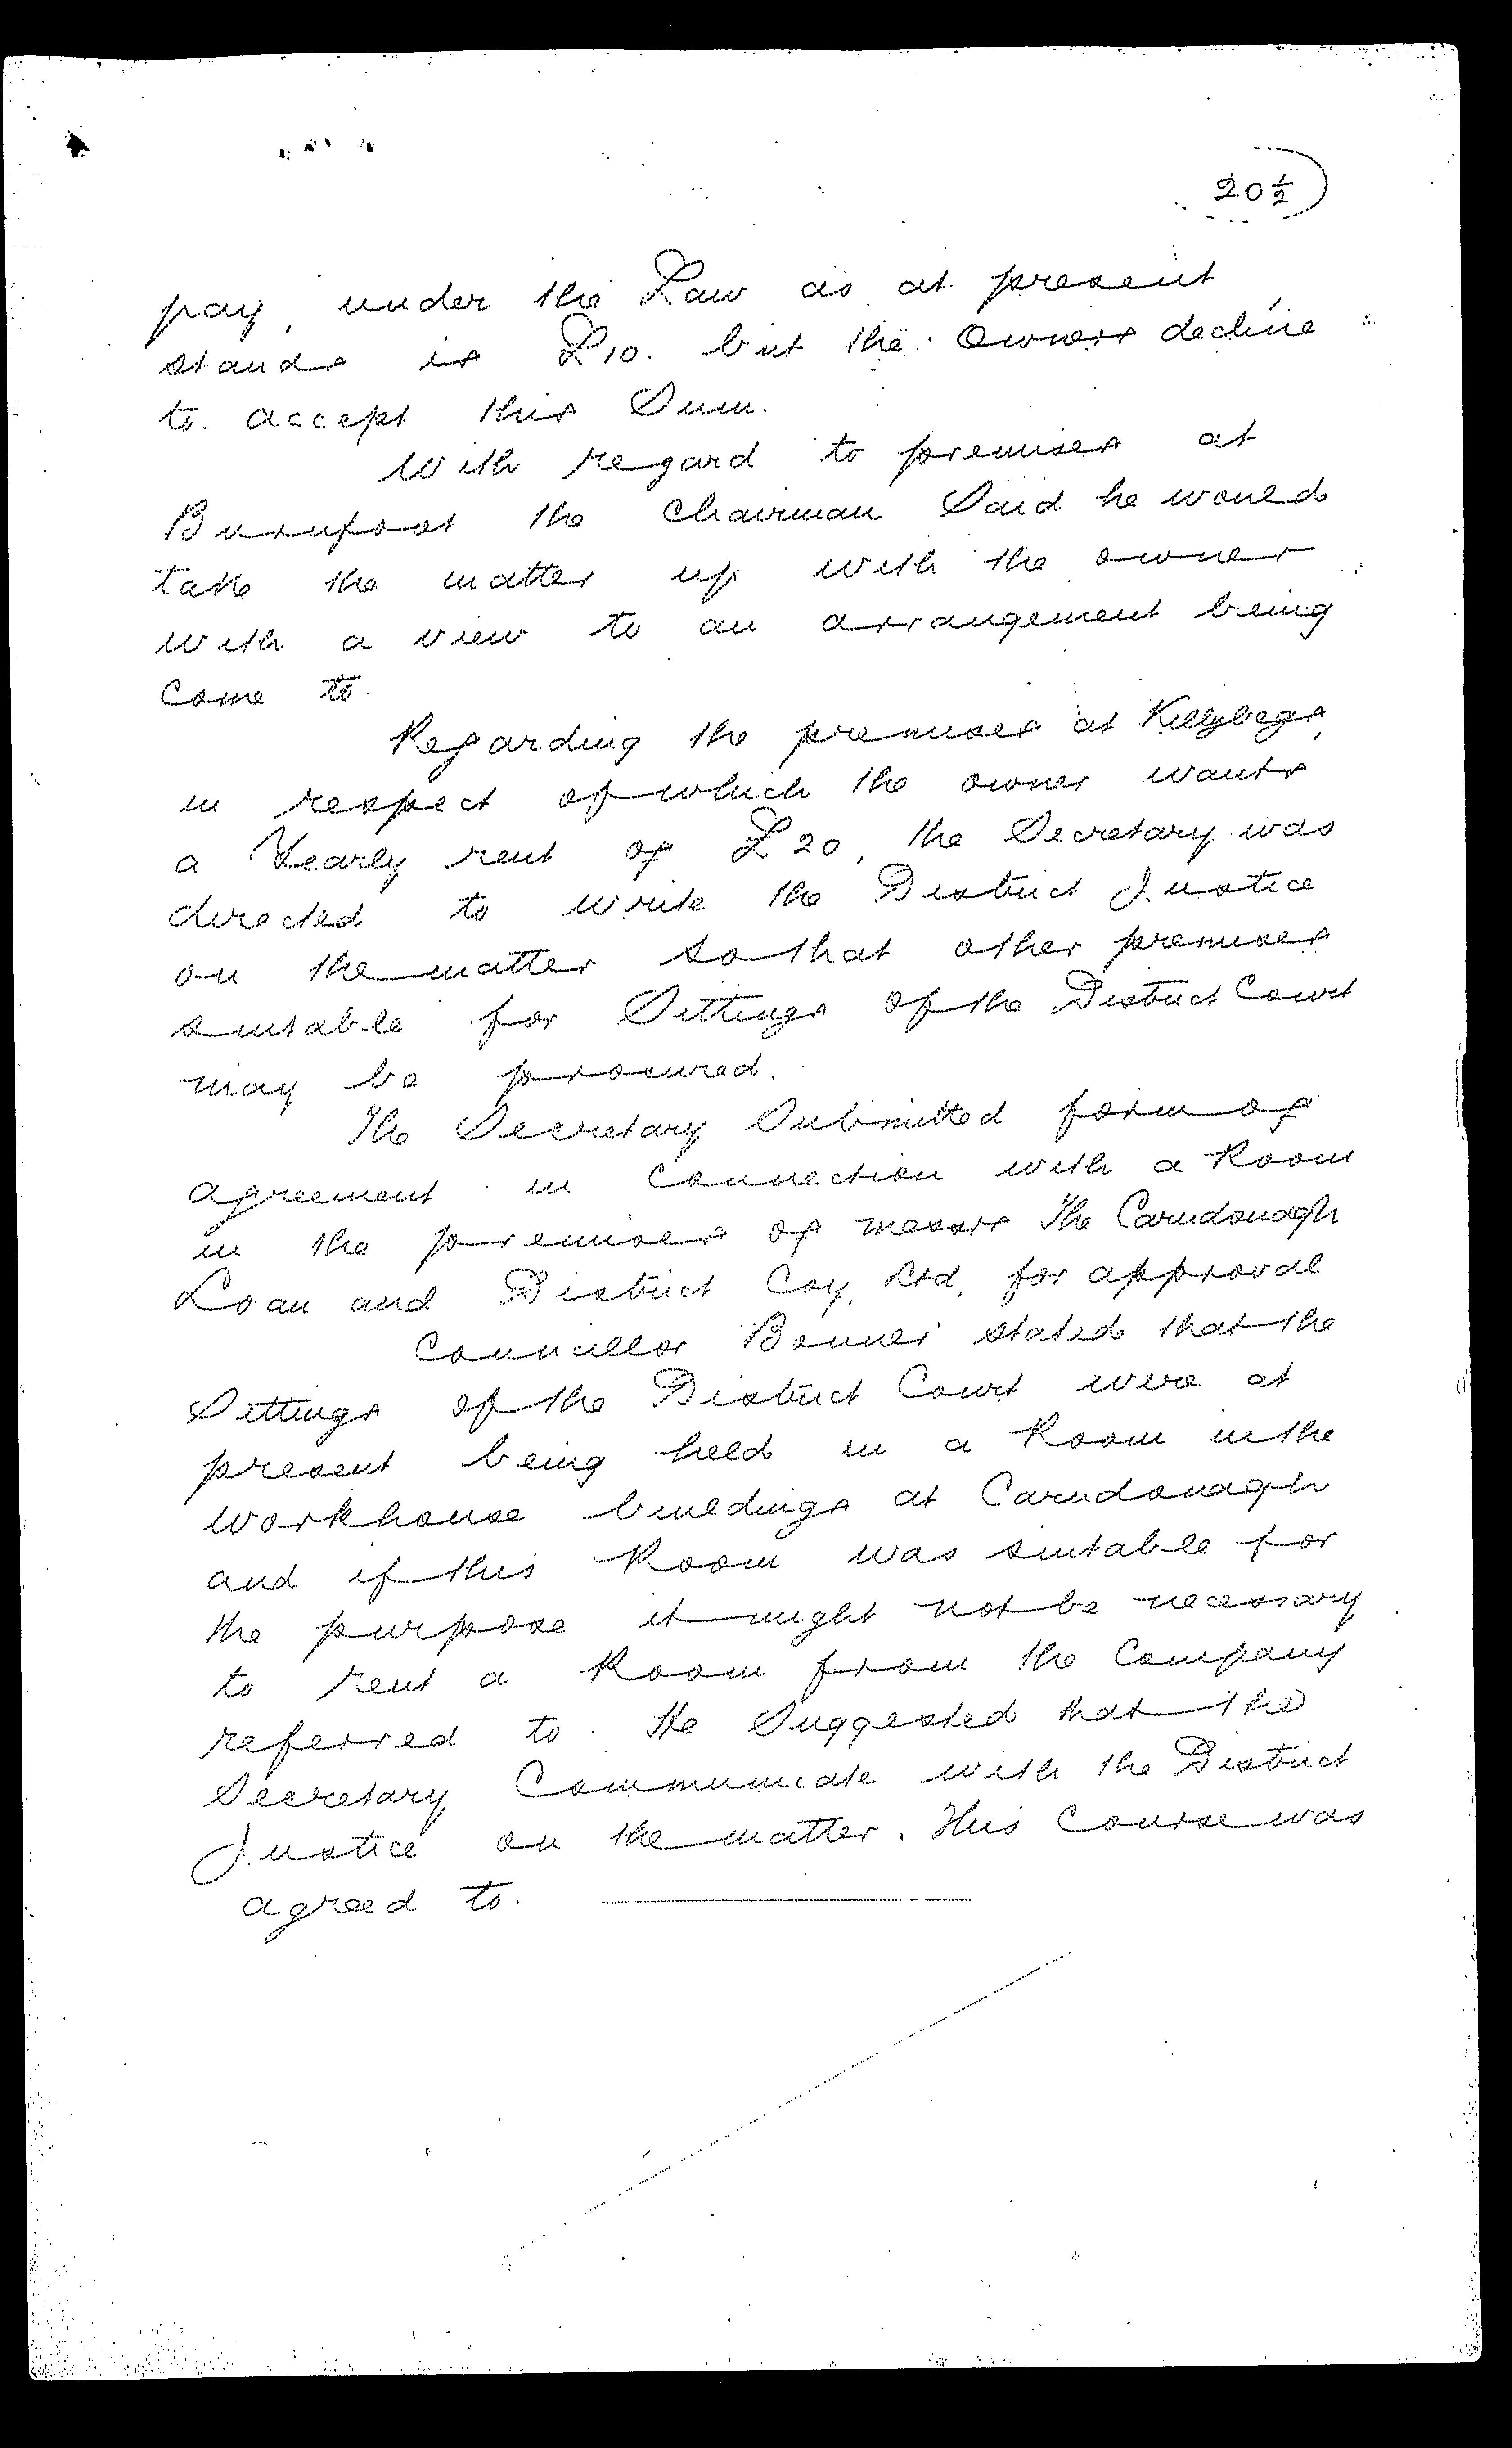 20½
pay, under the Law as at present
stands is £10. but the Owners decline
to accept this Sum.
With regard to premises at
Burnfoot the Chairman Said he would
take the matter up with the owner
with a view to an arrangement being
Come to.
Regarding the premises at Killybegs,
in respect of which the owner wants
a Yearly rent of £20, the Secretary was
directed to write the District Justice
on the matter so that other premises
suitable for Sittings of the District Court
may be procured.
The Secretary Submitted form of
agreement in Connection with a Room
in the premises of messrs The Carndonagh
Loan and District Coy. Ltd. for approval
Councillor Bonner stated that the
Sittings of the District Court were at
present being held in a Room in the
Workhouse buildings at Carndonagh
and if this Room was suitable for
the purpose it might not be necessary
to rent a Room from the Company
referred to. He Suggested that the
Secretary Communicate with the District
Justice on the matter. This Course was
agreed to.